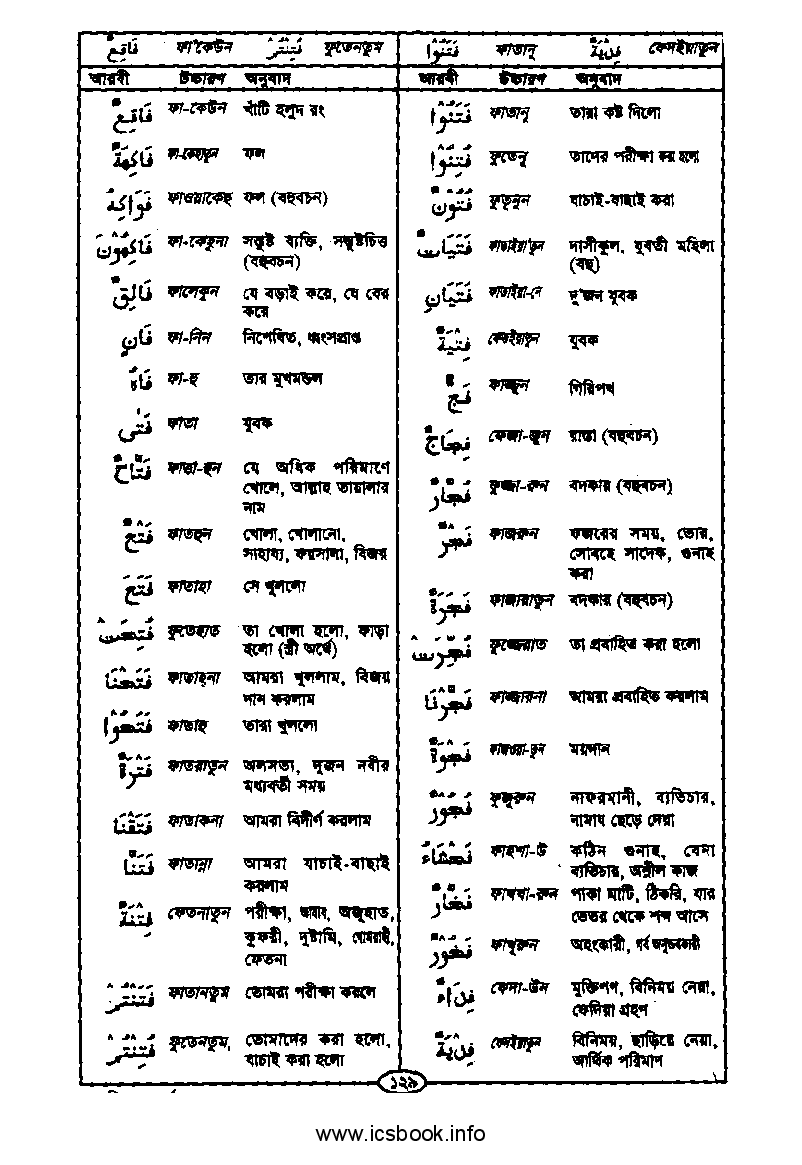 فَاقِعٌ ফা'কেউন فُتِنْتُمْ ফুতেনতুম
আরবী উচ্চারণ অনুবাদ
فَاقِعٌ ফা-কেউন খাঁটি হলুদ রং
فَاكِهَةٌ ফা-কেহাতুন ফল
فَوَاكِهُ ফাওয়াকেহু ফল (বহুবচন)
فَاكِهُوْنَ ফা-কেহুনা সন্তুষ্ট ব্যক্তি, সন্তুষ্টচিত্ত
(বহুবচন)
فَالِقٌ ফালেকুন যে বড়াই করে, যে বের
করে
فَانٍ ফা-নিন নিপেষিত, ধ্বংসপ্রাপ্ত
فَاهُ ফা-হু তার মুখমন্ডল
فَتٰى ফাতা যুবক
فَتَّاحٌ ফাত্তা-হুন যে অধিক পরিমাণে
খোলে, আল্লাহ তায়ালার
নাম
فَتْحٌ ফাতহুন খোলা, খোলানো,
সাহায্য, ফয়সালা, বিজয়
فَتَحَ ফাতাহা সে খুললো
فُتِحَتْ ফুতেহাত তা খোলা হলো, ফাড়া
হলো (স্ত্রী অর্থে)
فَتَحْنَا ফাতাহনা আমরা খুললাম, বিজয়
দান করলাম
فَتَحُوْا ফাতাহু তারা খুললো
فَتْرَةٌ ফাতরাতুন অলসতা, দুজন নবীর
মধ্যবর্তী সময়
فَتَقْنَا ফাতাকনা আমরা বিদীর্ণ করলাম
فَتَنَّا ফাতান্না আমরা যাচাই-বাছাই
করলাম
فِتْنَةٌ ফেতনাতুন পরীক্ষা, আযাব, অজুহাত,
কুফরী, দুষ্টামি, গোমরাহী,
ফেতনা
فَتَنْتُمْ ফাতানতুম তোমরা পরীক্ষা করলে
فُتِنْتُمْ ফুতেনতুম, তোমাদের করা হলো,
যাচাই করা হলো
فَتَنُوْا ফাতানু فِدْيَةٌ ফেদইয়াতুন
আরবী উচ্চারণ অনুবাদ
فَتَنُوْا ফাতানু তারা কষ্ট দিলো
فُتِنُوْا ফুতেনু তাদের পরীক্ষা করা হলো
فُتُوْنٌ ফুতূনুন যাচাই-বাছাই করা
فَتَيَاتٌ ফাতাইয়া'তুন দাসীকুল, যুবতী মহিলা
(বহু)
فَتَيَانِ ফাতাইয়া-নে দু'জন যুবক
فِتْيَةٌ ফেতইয়াতুন যুবক
فَجٌّ ফাজ্জুন গিরিপথ
فِجَاجٌ ফেজা-জুন রাস্তা (বহুবচন)
فُجَّارٌ ফুজ্জা-রুন বদকার (বহুবচন)
فَجْرٌ ফাজরুন ফজরের সময়, ভোর,
সোবহে সাদেক, গুনাহ
করা
فَجَرَةٌ ফাজারাতুন বদকার (বহুবচন)
فُجِّرَتْ ফুজ্জেরাত তা প্রবাহিত করা হলো
فَجَّرْنَا ফাজ্জারনা আমরা প্রবাহিত করলাম
فَجْوَةٌ ফাজওয়া-তুন ময়দান
فُجُوْرٌ ফুজুরুন নাফরমানী, ব্যভিচার,
নামায ছেড়ে দেয়া
فَحْشَاءُ ফাহশা-উ কঠিন গুনাহ, যেনা
ব্যভিচার, অশ্লীল কাজ
فَخَّارٌ ফাখখা-রুন পাকা মাটি, ঠিকরি, যার
ভেতর থেকে শব্দ আসে
فَخُوْرٌ ফাখুরুন অহংকারী, গর্ব অনুভবকারী
فِدَاءٌ ফেদা-উন মুক্তিপণ, বিনিময় নেয়া,
ফেদিয়া গ্রহণ
فِدْيَةٌ ফেদইয়াতুন বিনিময়, ছাড়িয়ে নেয়া,
আর্থিক পরিমাণ
১২৯
www.icsbook.info